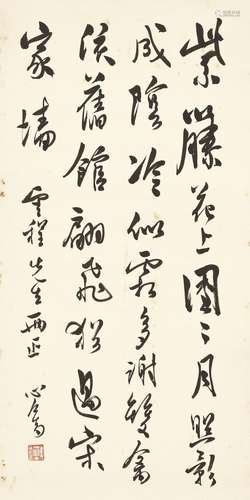 紫藤花上團〻月照影
成陰冷似霜多謝雙禽
誤舊館翩飛猶過宋
家墻
雲程先生兩正
心畬